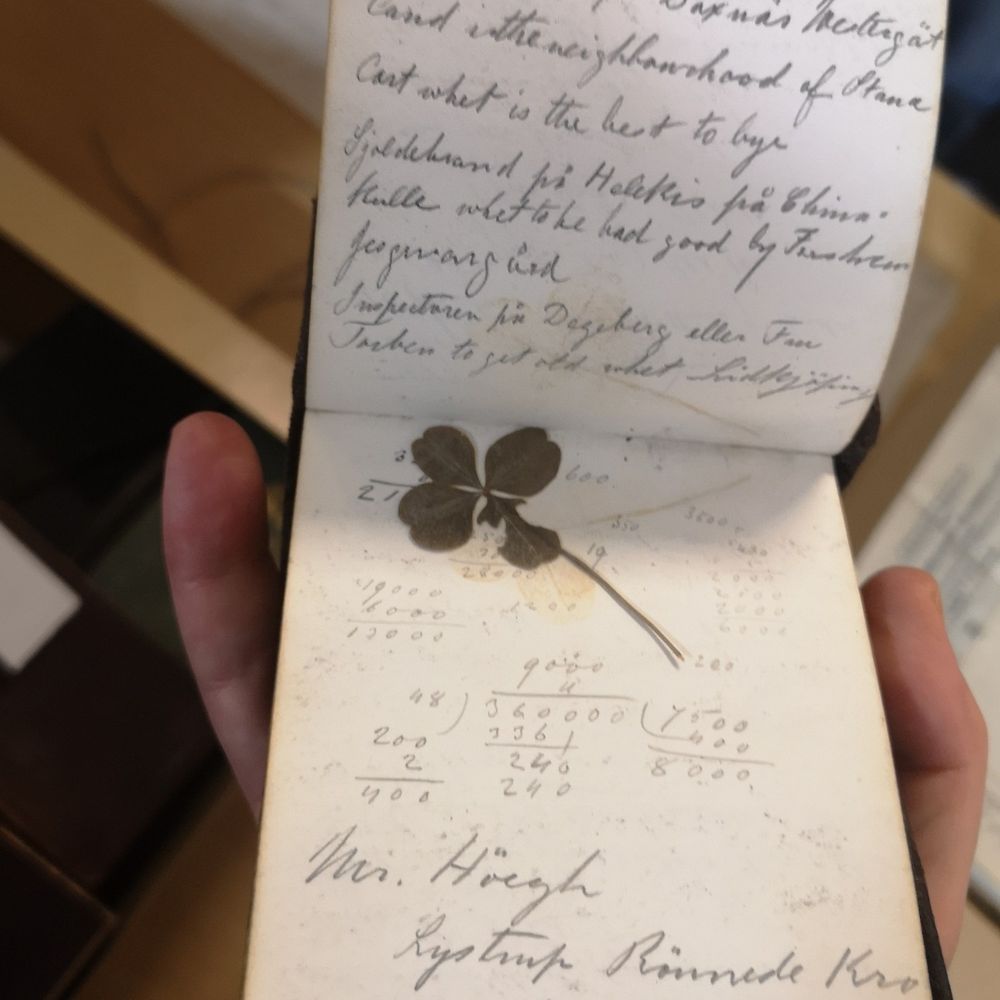 Daxnäs Westergöt
Land inthe neighbourhood of Stana
Cart whet is the best to bye
Hjeldebrand på Helekis på China-
Kulle whet to be had good by Forshem
Inspectoren på Degeberg eller Fru
Torben to get old whet Lidkjöping
3
21
600
350
3500
19
28000
19000
6000
13000
1200
2000
6000
9000
200
48) 360000 (7500
336
400
200
240
8000
2
240
400
Mr. Höegh
Lystrup Rönnede Kro